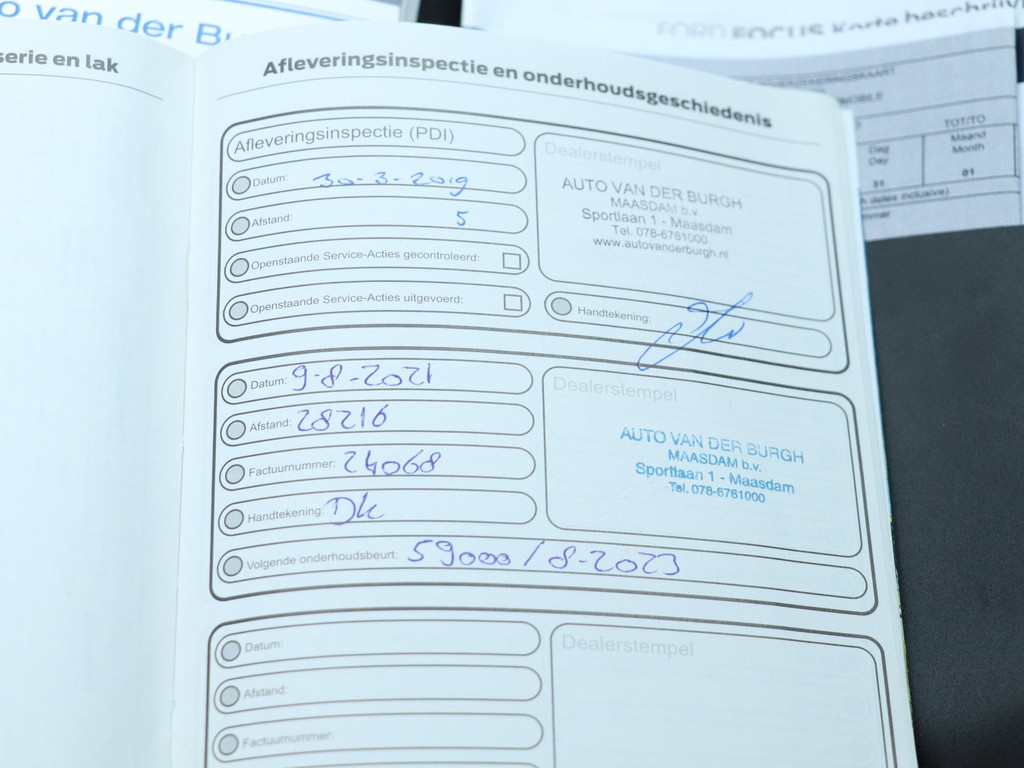 o van der Bu
FORD FOCUS Korte beschrijvi
serie en lak
Afleveringsinspectie en onderhoudsgeschiedenis
Afleveringsinspectie (PDI)
Datum: 30-3-2019
Afstand: 5
Openstaande Service-Acties gecontroleerd:
Openstaande Service-Acties uitgevoerd:
Dealerstempel
AUTO VAN DER BURGH
MAASDAM b.v.
Sportlaan 1 - Maasdam
Tel. 078-6761000
www.autovanderburgh.nl
Handtekening:
Datum: 9-8-2021
Afstand: 28216
Factuurnummer: 24068
Handtekening: Dk
Volgende onderhoudsbeurt: 59000 / 8-2023
Dealerstempel
AUTO VAN DER BURGH
MAASDAM b.v.
Sportlaan 1 - Maasdam
Tel. 078-6761000
Datum:
Afstand:
Factuurnummer:
Dealerstempel
MOBILE
TOT/TO
Dag
Day
Maand
Month
31
01
dates inclusive)